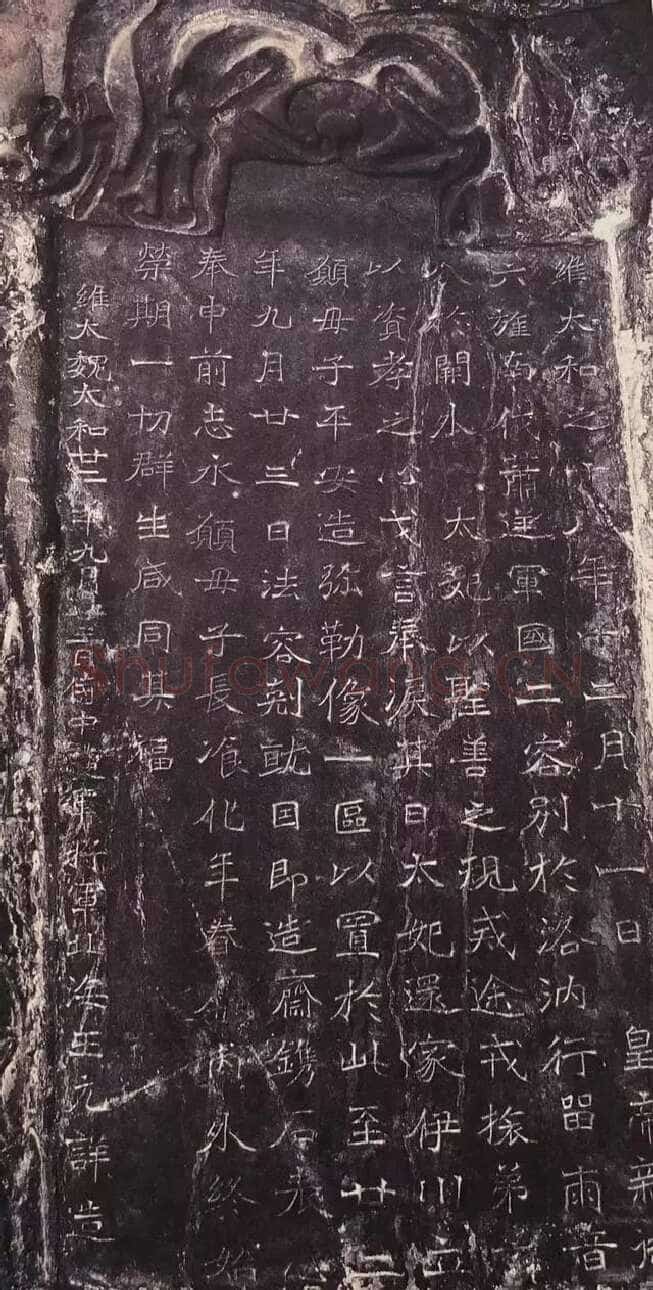 維太和之十八年十二月十一日皇帝親御
六旌南伐蕭逆軍國二容別於洛汭行留兩音
分於闕外太妃以聖善之規戒途戎旅弟子
以資孝之心戈言奉淚其日太妃還家伊川立
願母子平安造弥勒像一區以置於此至廿二
年九月廿三日法容剋就因即造齋鐫石表心
奉申前志永願母子長飡化年眷屬內外終始
榮期一切群生咸同其福
維大魏太和廿二年九月廿三日侍中護軍將軍北海王元詳造
Shufawang.CN